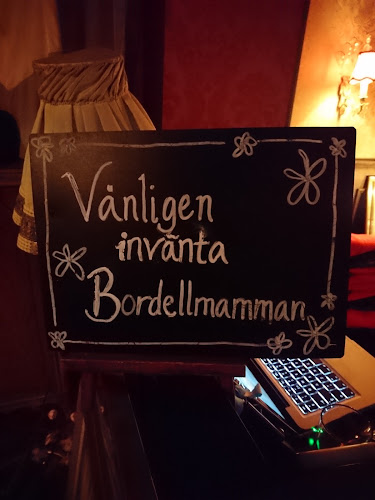 Vänligen
invänta
Bordellmamman